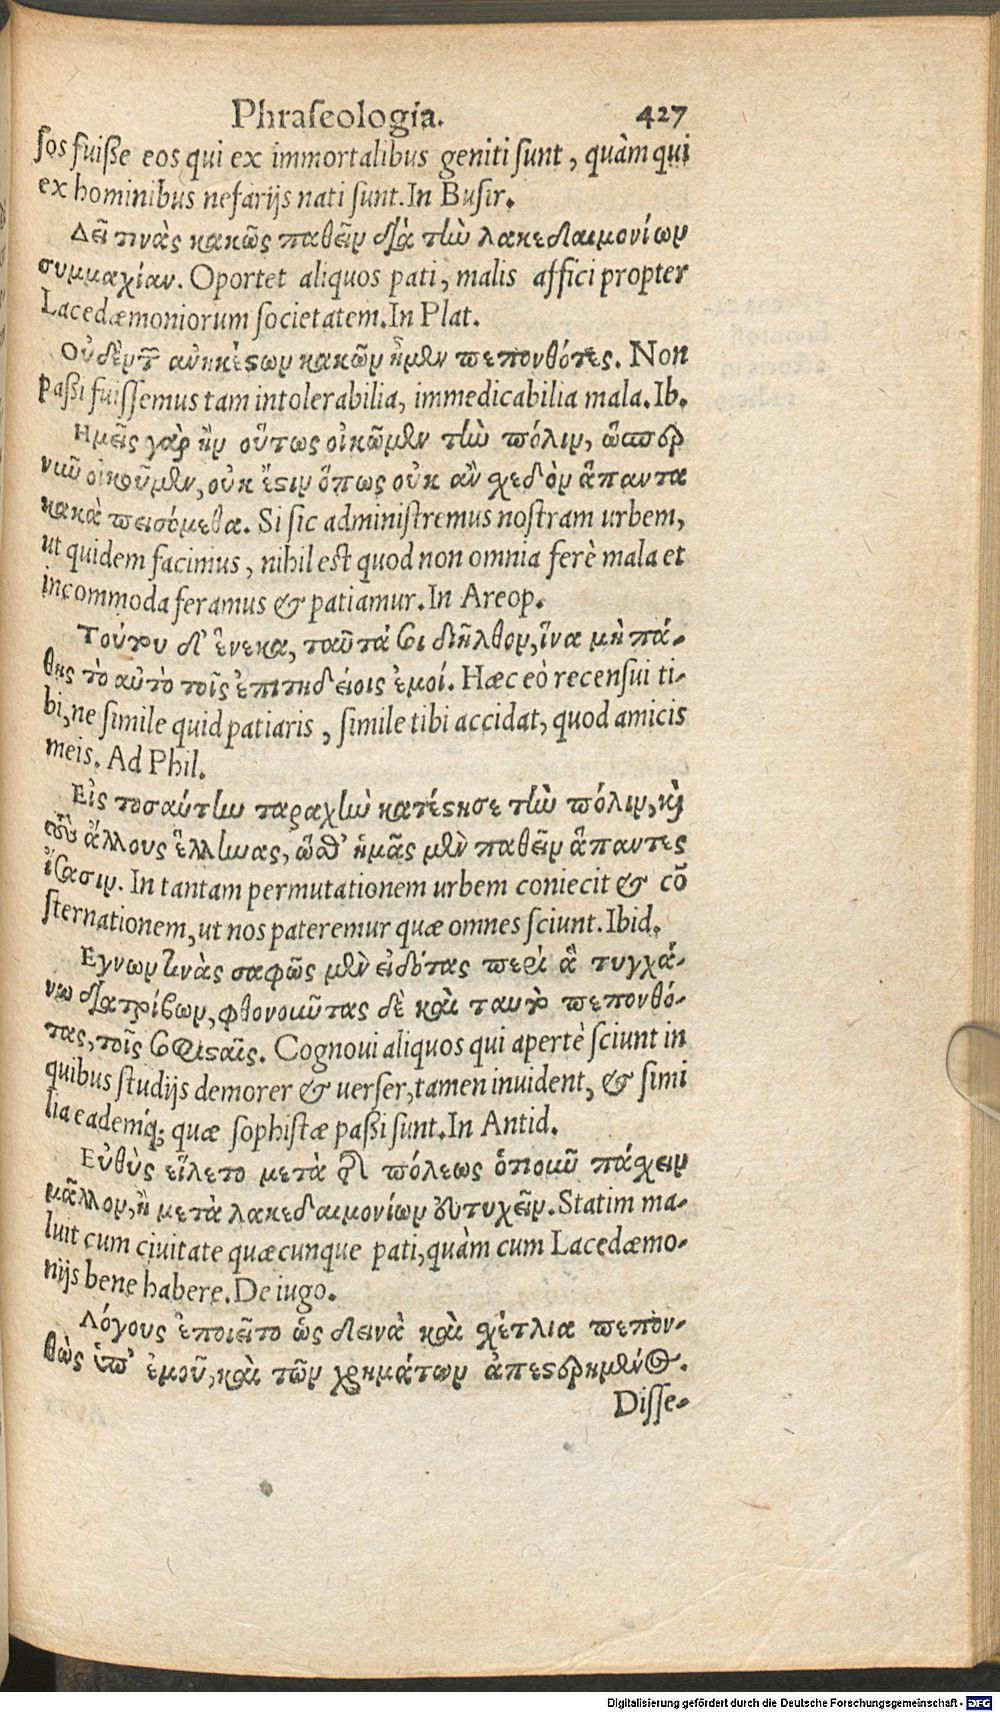 Phraſeologia. 427
ſos fuiſſe eos qui ex immortalibus geniti ſunt, quàm qui
ex hominibus nefarijs nati ſunt. In Buſir.
Δεῖ τινὰς κακῶς παθεῖν διὰ τὴν λακεδαιμονίων
συμμαχίαν. Oportet aliquos pati, malis affici propter
Lacedæmoniorum ſocietatem. In Plat.
Οὐδὲν τῶν ἀνηκέστων κακῶν ἦμεν πεπονθότες. Non
paſſi fuiſſemus tam intolerabilia, immedicabilia mala. Ib.
Ημεῖς γὰρ ἢν οὕτως οἰκῶμεν τὴν πόλιν, ὥσπερ
νῦν οἰκοῦμεν, οὐκ ἔστιν ὅπως οὐκ ἂν σχεδὸν ἅπαντα
κακὰ πεισόμεθα. Si ſic adminiſtremus noſtram urbem,
ut quidem facimus, nihil eſt quod non omnia ferè mala et
incommoda feramus & patiamur. In Areop.
Τούτου δ' ἕνεκα, ταῦτά σοι διῆλθον, ἵνα μὴ πά-
θῃς τὸ αὐτὸ τοῖς ἐπιτηδείοις ἐμοί. Hæc eò recenſui ti-
bi, ne ſimile quid patiaris, ſimile tibi accidat, quod amicis
meis. Ad Phil.
Εἰς τοσαύτην ταραχὴν κατέστησε τὴν πόλιν, καὶ
τοὺς ἄλλους ἕλληνας, ὥσθ' ἡμᾶς μὲν παθεῖν ἅπαντες
ἴσασιν. In tantam permutationem urbem coniecit & cõ
ſternationem, ut nos pateremur quæ omnes ſciunt. Ibid.
Εγνων τινὰς σαφῶς μὲν εἰδότας περὶ ἃ τυγχά-
νω διατρίβων, φθονοῦντας δὲ καὶ ταυτὰ πεπονθό-
τας, τοῖς σοφισταῖς. Cognoui aliquos qui apertè ſciunt in
quibus ſtudijs demorer & uerſer, tamen inuident, & ſimi
lia eademq́; quæ ſophiſtæ paſſi ſunt. In Antid.
Εὐθὺς εἵλετο μετὰ τῆς πόλεως ὁποιοῦν πάσχειν
μᾶλλον, ἢ μετὰ λακεδαιμονίων εὐτυχεῖν. Statim ma-
luit cum ciuitate quæcunque pati, quàm cum Lacedæmo-
nijs bene habere. De iugo.
Λόγους ἐποιεῖτο ὡς δεινὰ καὶ σχέτλια πεπον-
θὼς ὑπ' ἐμοῦ, καὶ τῶν χρημάτων ἀπεστερημένος.
Diſſe-
Digitalisierung gefördert durch die Deutsche Forschungsgemeinschaft - DFG